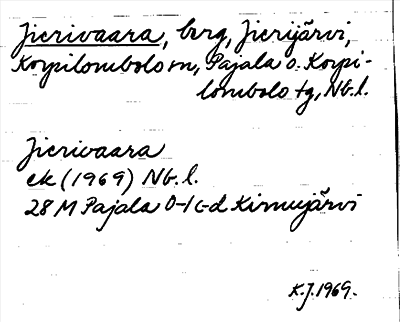 Jierivaara, berg, Jierijärvi,
Korpilombolo sn, Pajala o. Korpi-
lombolo tg, Nb. l.
Jierivaara
ek (1969) Nb. l.
28 M Pajala 0-1 c-d Kirnujärvi
K.J. 1969.